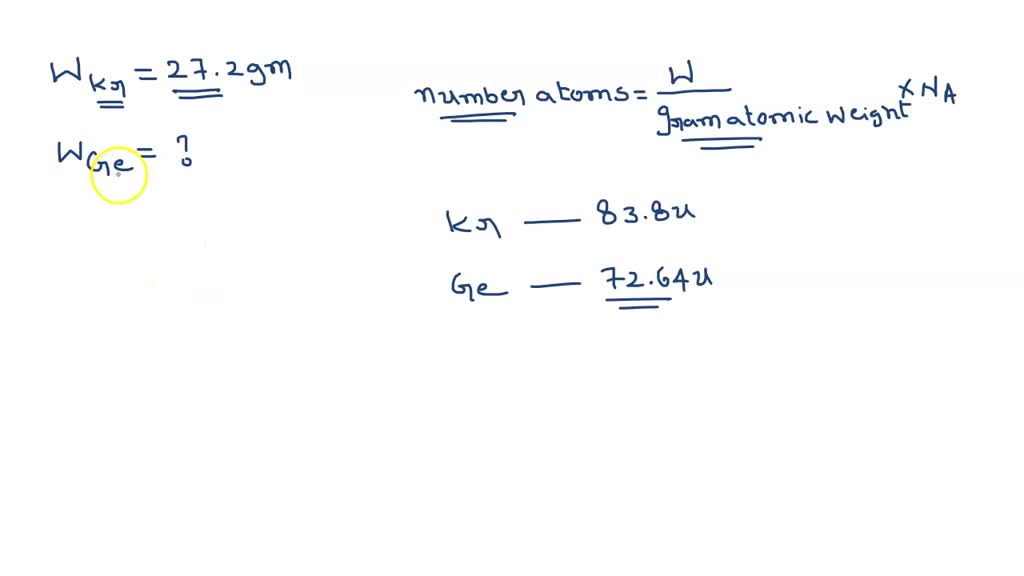 W Kr = 27.2gm
number atoms = W / gram atomic weight × NA
WGe = ?
Kr — 83.8u
Ge — 72.64u